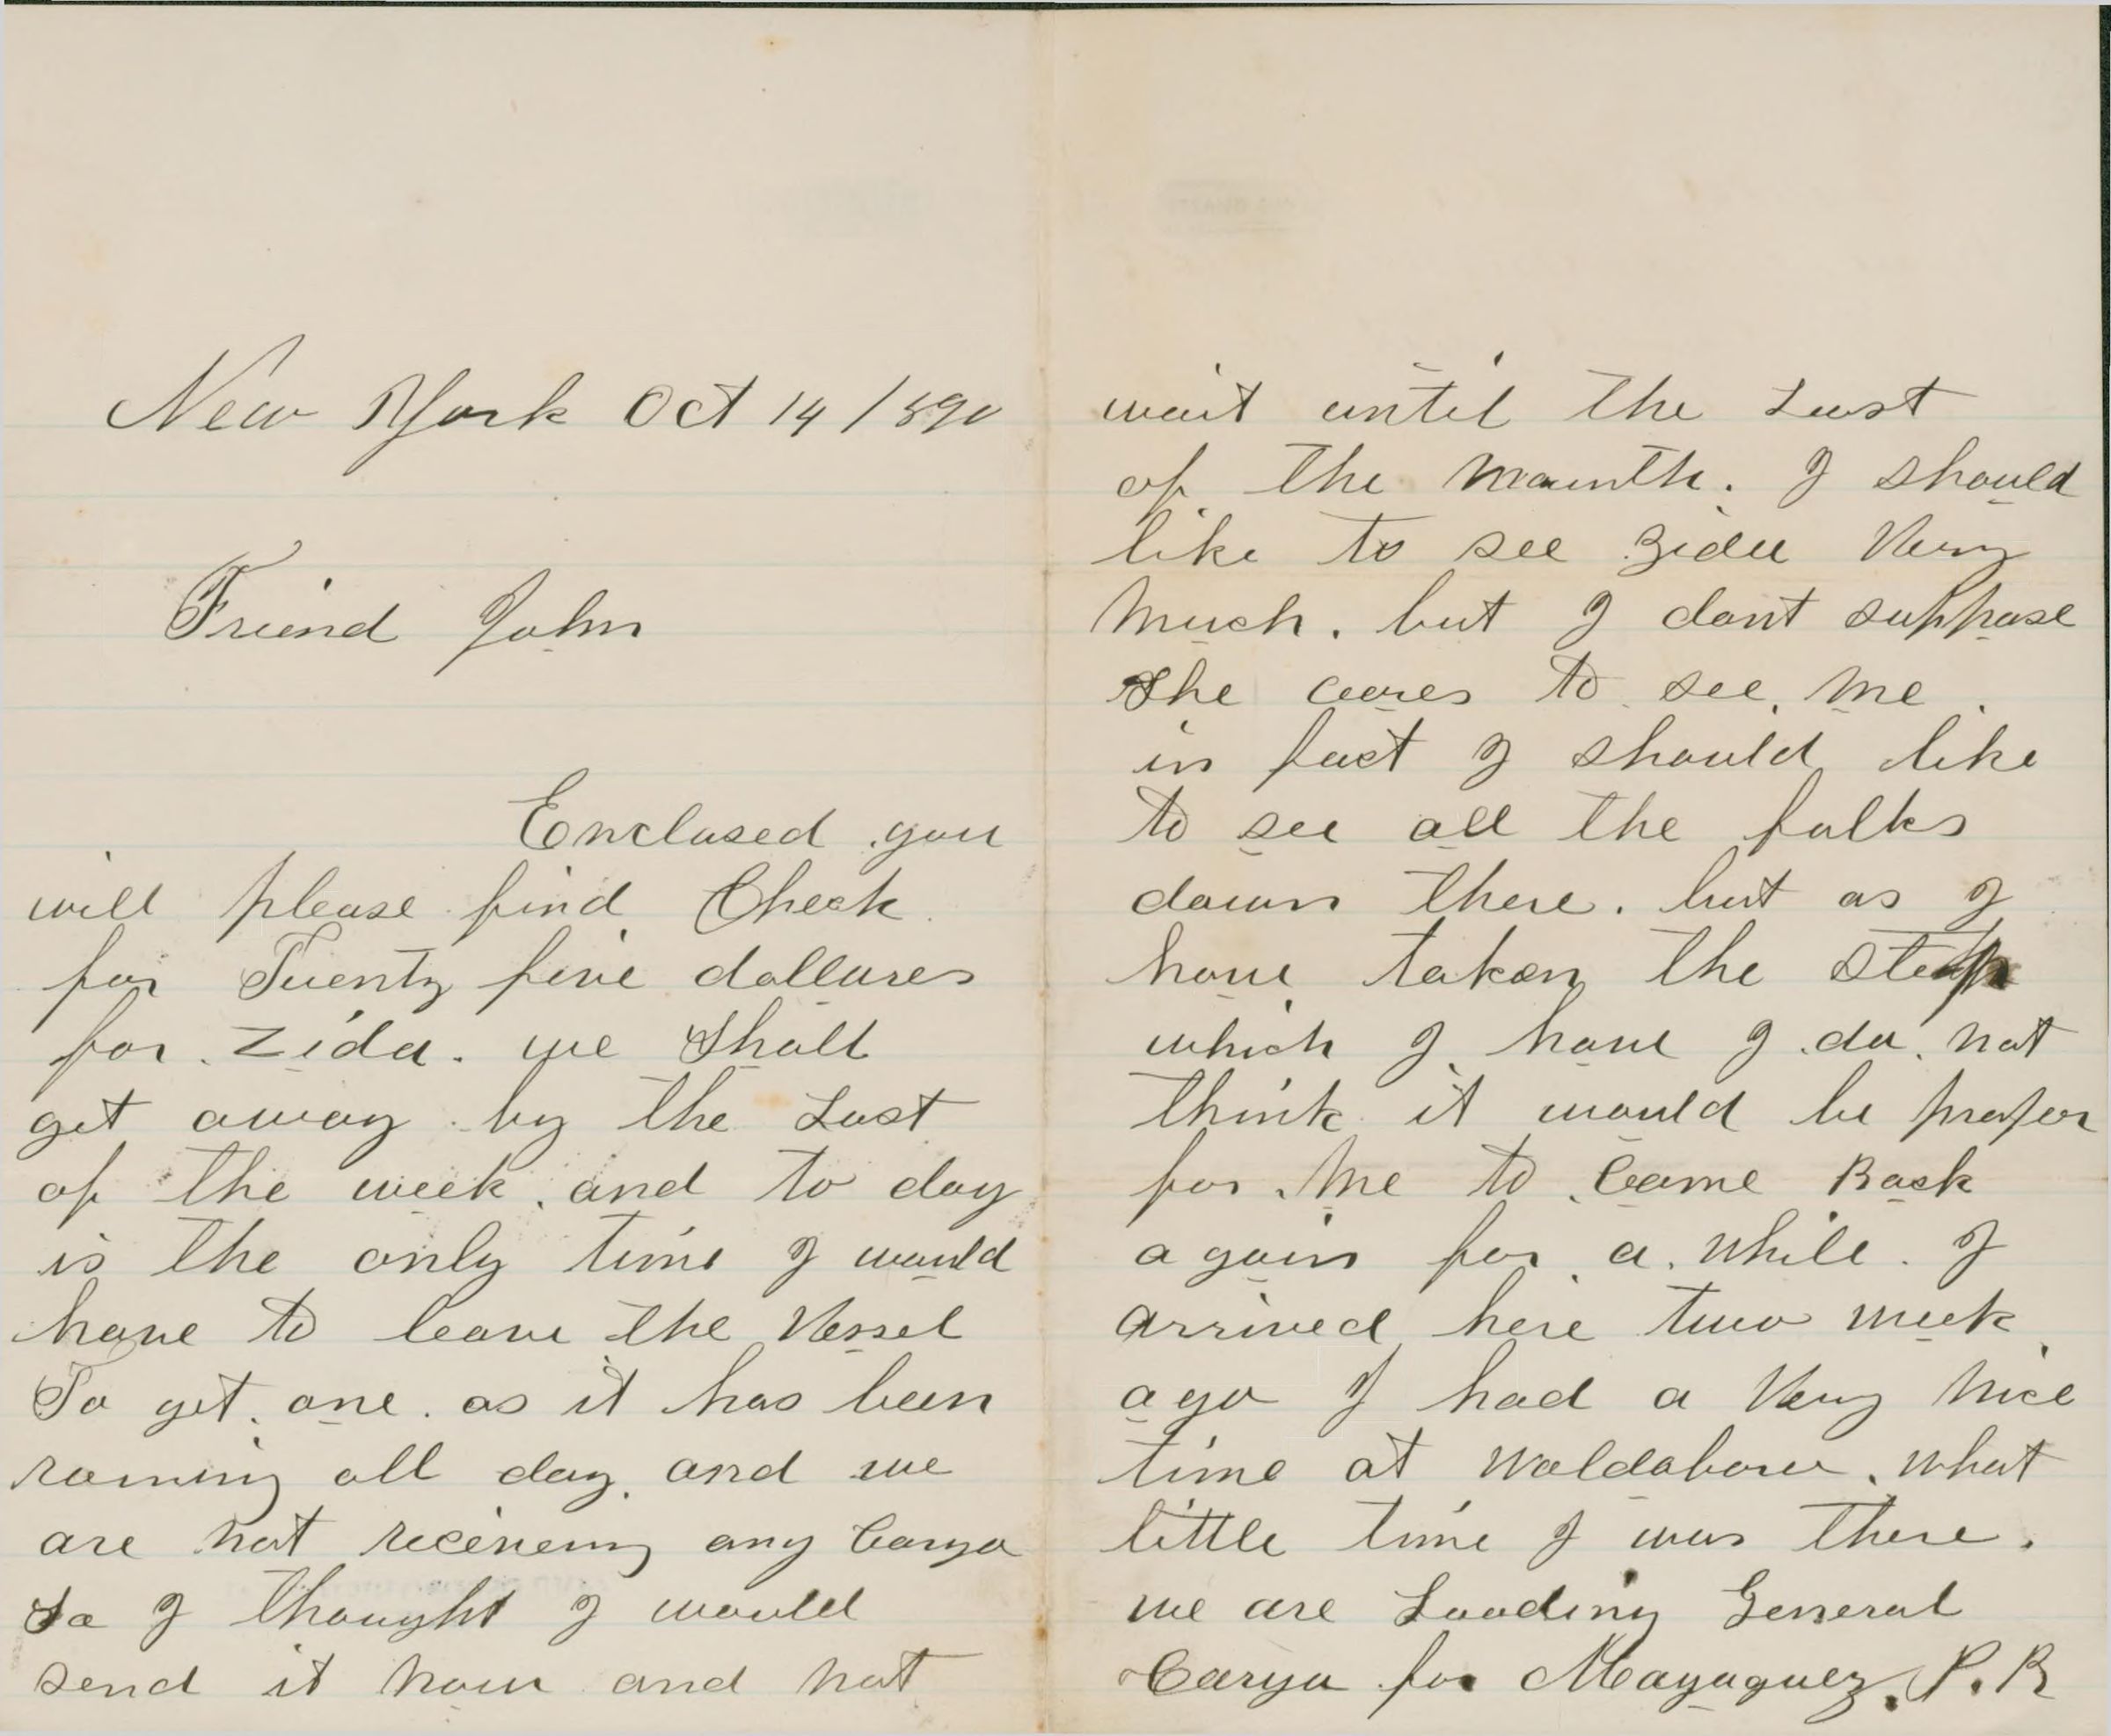 New York Oct 14 / 890
Friend John
Enclosed you
will please find Check
for Twenty five dollares
for Zida. we Shall
get away by the Last
of the week. and to day
is the only time I would
have to leave the Vessel
To get one. as it has been
raining all day. and we
are not receiveing any Cargo
So I thought I would
send it now and not
wait until the Last
of the mounth. I should
like to see Zida Very
Much. but I dont suppose
She cares to see Me.
in fact I should like
to see all the folks
down there. but as I
have taken the step
which I have I do not
think it would be proper
for Me to Come Back
again for a while. I
arrived here two week
ago I had a Very Nice
time at Waldaboro. what
little time I was there.
we are Loading General
Cargo for Mayaguez. P.R